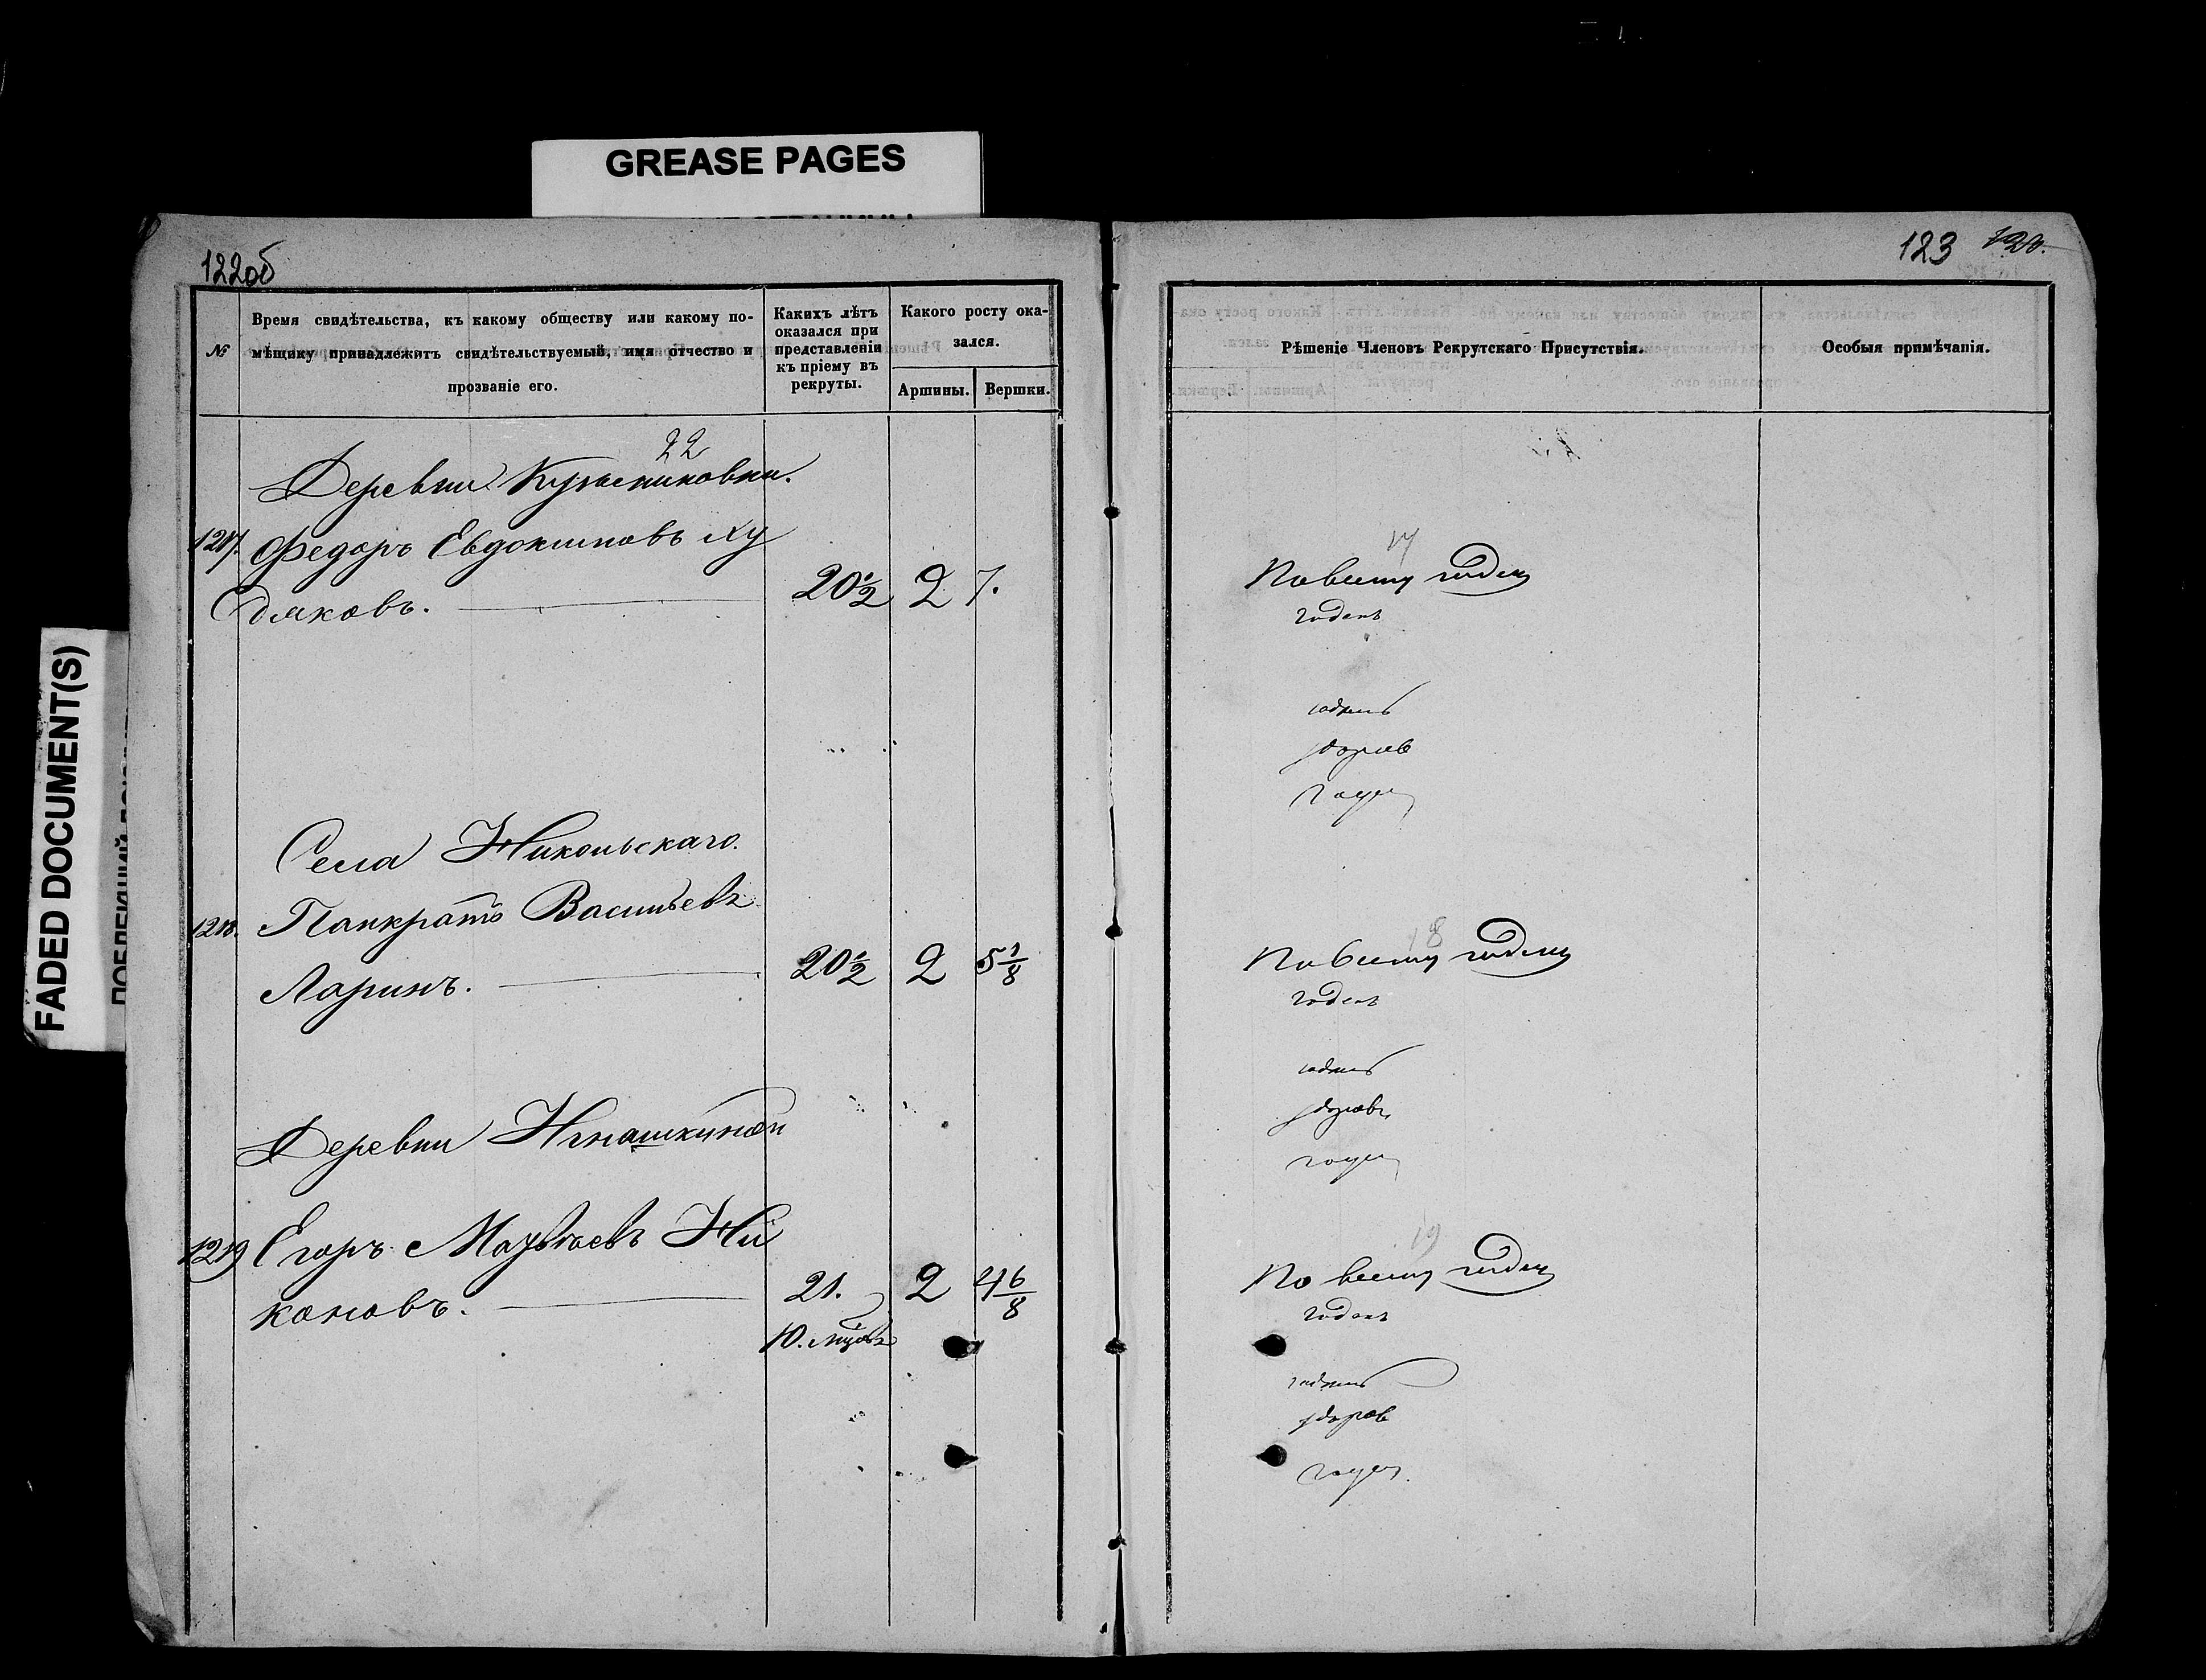 GREASE PAGES
FADED DOCUMENT(S)
122об
№
Время свидѣтельства, къ какому обществу или какому по-
мѣщику принадлежитъ свидѣтельствуемый, имя отчество и
прозваніе его.
Какихъ лѣтъ
оказался при
представленіи
къ пріему въ
рекруты.
Какого росту ока-
зался.
Аршины.
Вершки.
22
Деревни
1217. Федоръ Евдокимовъ Ху
дяковъ. 20½ 2 7.
Села Никольскаго.
1218. Панкратъ Васильевъ
Ларинъ. 20½ 2 5 1/8
Деревни Игнашкиной
1219 Егоръ Матвѣевъ Ни
коновъ. 21. 2 4 6/8
10. мѣс
123
Рѣшеніе Членовъ Рекрутскаго Присутствія.
Особыя примѣчанія.
17
По всему годен
годенъ
годенъ
здоров
18
По всему годен
годенъ
годенъ
здоровъ
19
По всему годен
годенъ
годенъ
здоров